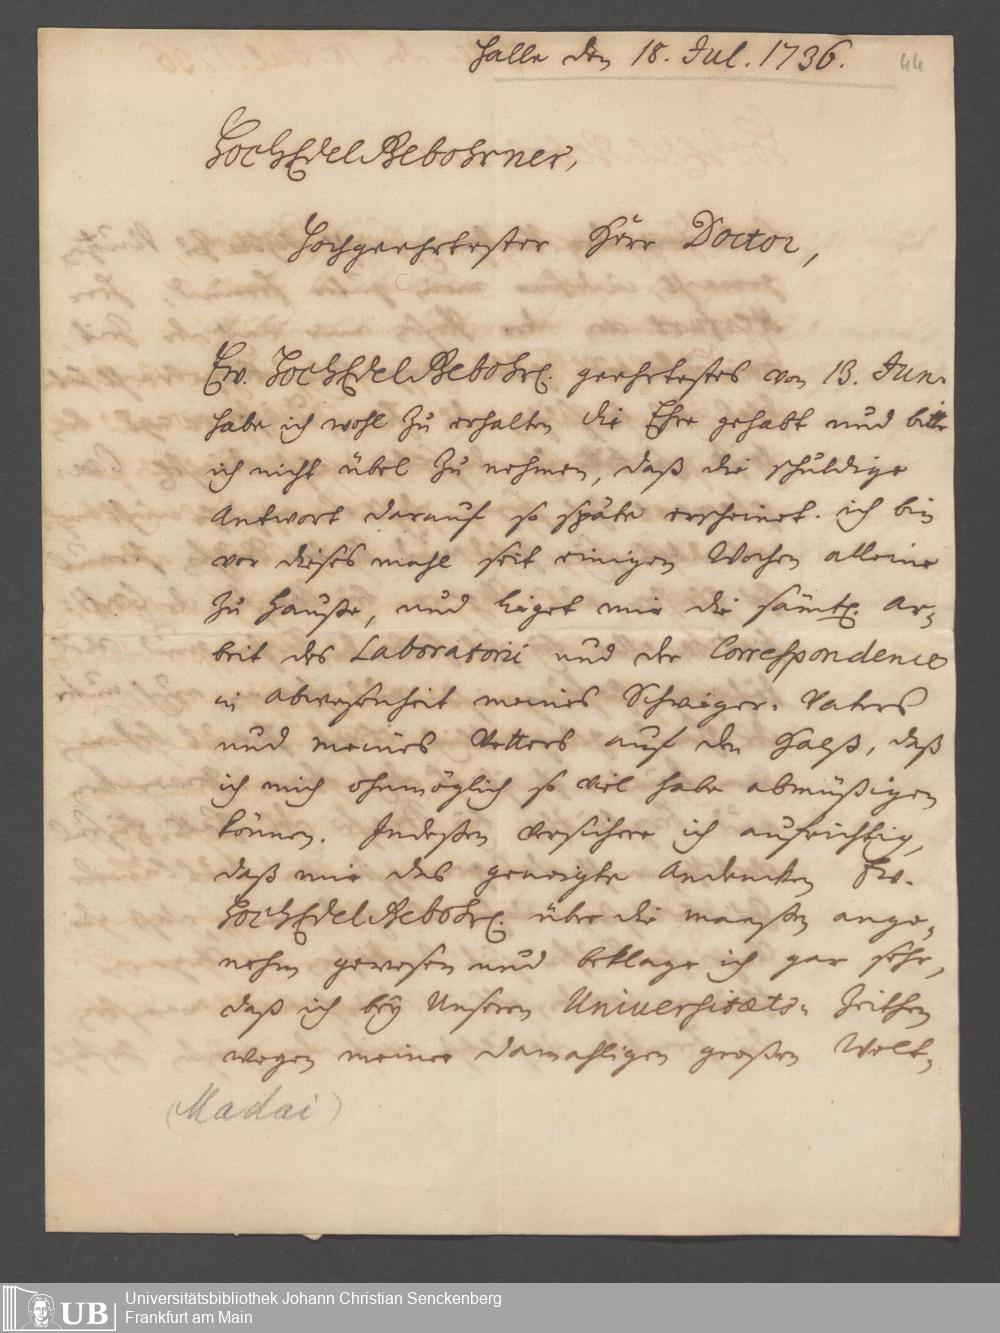 Halle den 18. Jul. 1736.
44
HochEdelGebohrner,
Hochgeehrtester Herr Doctor,
Ew. HochEdelGebohrl. geehrtestes von 13. Jun.
habe ich wohl zu erhalten die Ehre gehabt und bitte
ich nicht übel zu nehmen, daß die schuldige
Antwort darauf so späte erscheinet. ich bin
vor dieses mahl seit einigen Wochen alleine
zu Hauße, und lieget mir die sämtl. Ar-
beit des Laboratorii und der Correspondence
in abwesenheit meines Schwieger-Vaters
und meines Vetters auf den Halß, daß
ich mich ohnmöglich so viel habe abmüßigen
können. Indeßen versichere ich aufrichtig,
daß mir das geneigte Andencken Ew.
HochEdelGebohrl. über die maaßen ange-
nehm gewesen und beklage ich gar sehr,
daß ich bey Unsern Universitaets-Zeithen
wegen meiner damahligen großen Welt-
(Madai)
UB
Universitätsbibliothek Johann Christian Senckenberg
Frankfurt am Main